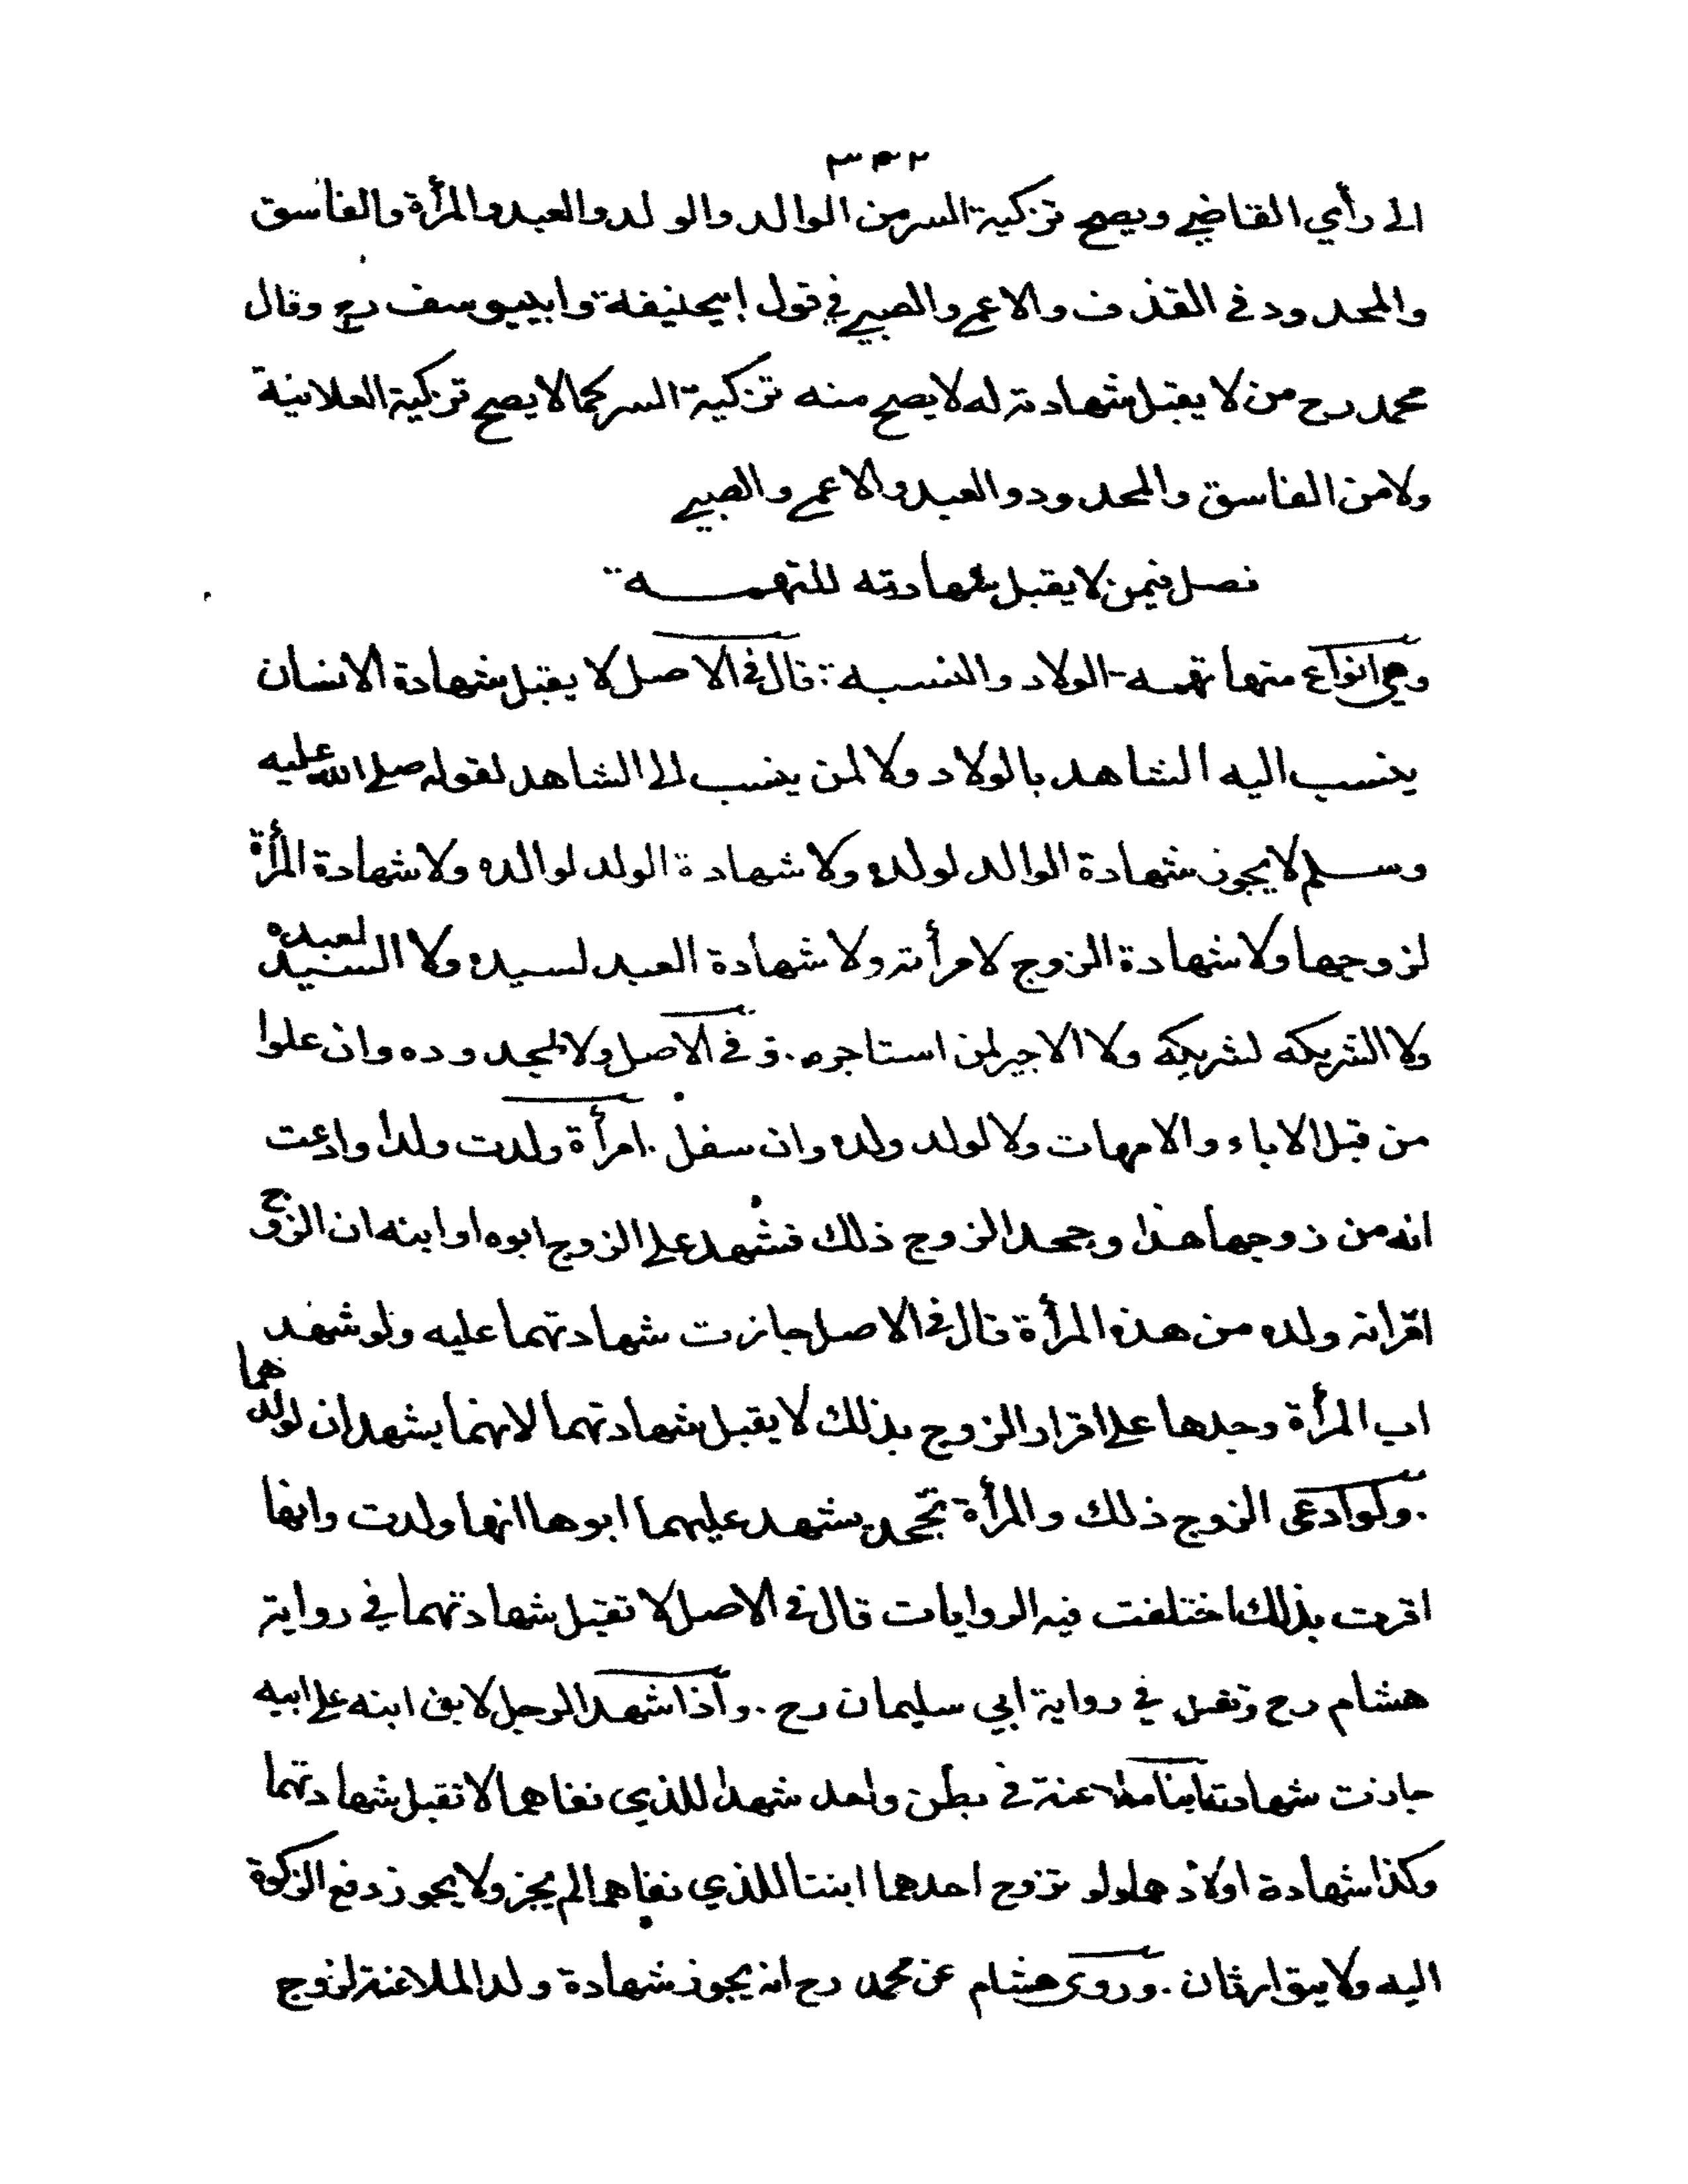 ٣٤٢
الى رأي القاضي ويصح تزكية السر من الوالد والولد والعبد والمرأة والفاسق
والمحدود في القذف والاعمى والصبي في قول ابيحنيفة وابييوسف رح وقال
محمد رح من لا يقبل شهادته له لا يصح منه تزكية السر كما لا يصح تزكية العلانية
ولا من الفاسق والمحدود والعبد والاعمى والصبي
فصل فيمن لا يقبل شهادته للتهمة
وهي انواع منها تهمة الولاد والنسبة قال في الاصل لا يقبل شهادة الانسان
ينسب اليه الشاهد بالولاد ولا لمن ينسب الى الشاهد لقوله صلى الله عليه
وسلم لا يجوز شهادة الوالد لولده ولا شهادة الولد لوالده ولا شهادة المرأة
لزوجها ولا شهادة الزوج لامرأته ولا شهادة العبد لسيده ولا السيد لعبده
ولا الشريكه لشريكه ولا الاجير لمن استاجره . و في الاصل ولا لجدوده وان علوا
من قبل الاباء والامهات ولا لولد ولده وان سفل . امرأة ولدت ولدا وادعت
انه من زوجها هذا وجحد الزوج ذلك فشهد على الزوج ابوه او ابنه ان الزوج
اقر انه ولده من هذه المرأة قال في الاصل جازت شهادتهما عليه ولو شهد
اب المرأة وجدها على اقرار الزوج بذلك لا يقبل شهادتهما لانهما يشهدان لولدهما
. ولو ادعى الزوج ذلك والمرأة تجحد يشهد عليهما ابوها انها ولدت وانها
اقرت بذلك اختلفت فيه الروايات قال في الاصل لا تقبل شهادتهما في رواية
هشام رح وتقبل في رواية ابي سليمان رح . واذا شهد الرجل لابن ابنه على ابيه
جازت شهادته ابنا ملاعنة في بطن واحد شهدا للذي نفاهما لا تقبل شهادتهما
وكذا شهادة اولادهما ولو تزوج احدهما ابنتا للذي نفاهما لم يجز ولا يجوز دفع الزكوة
اليه ولا يتوارثان . وروى هشام عن محمد رح انه يجوز شهادة ولد الملاعنة لزوج